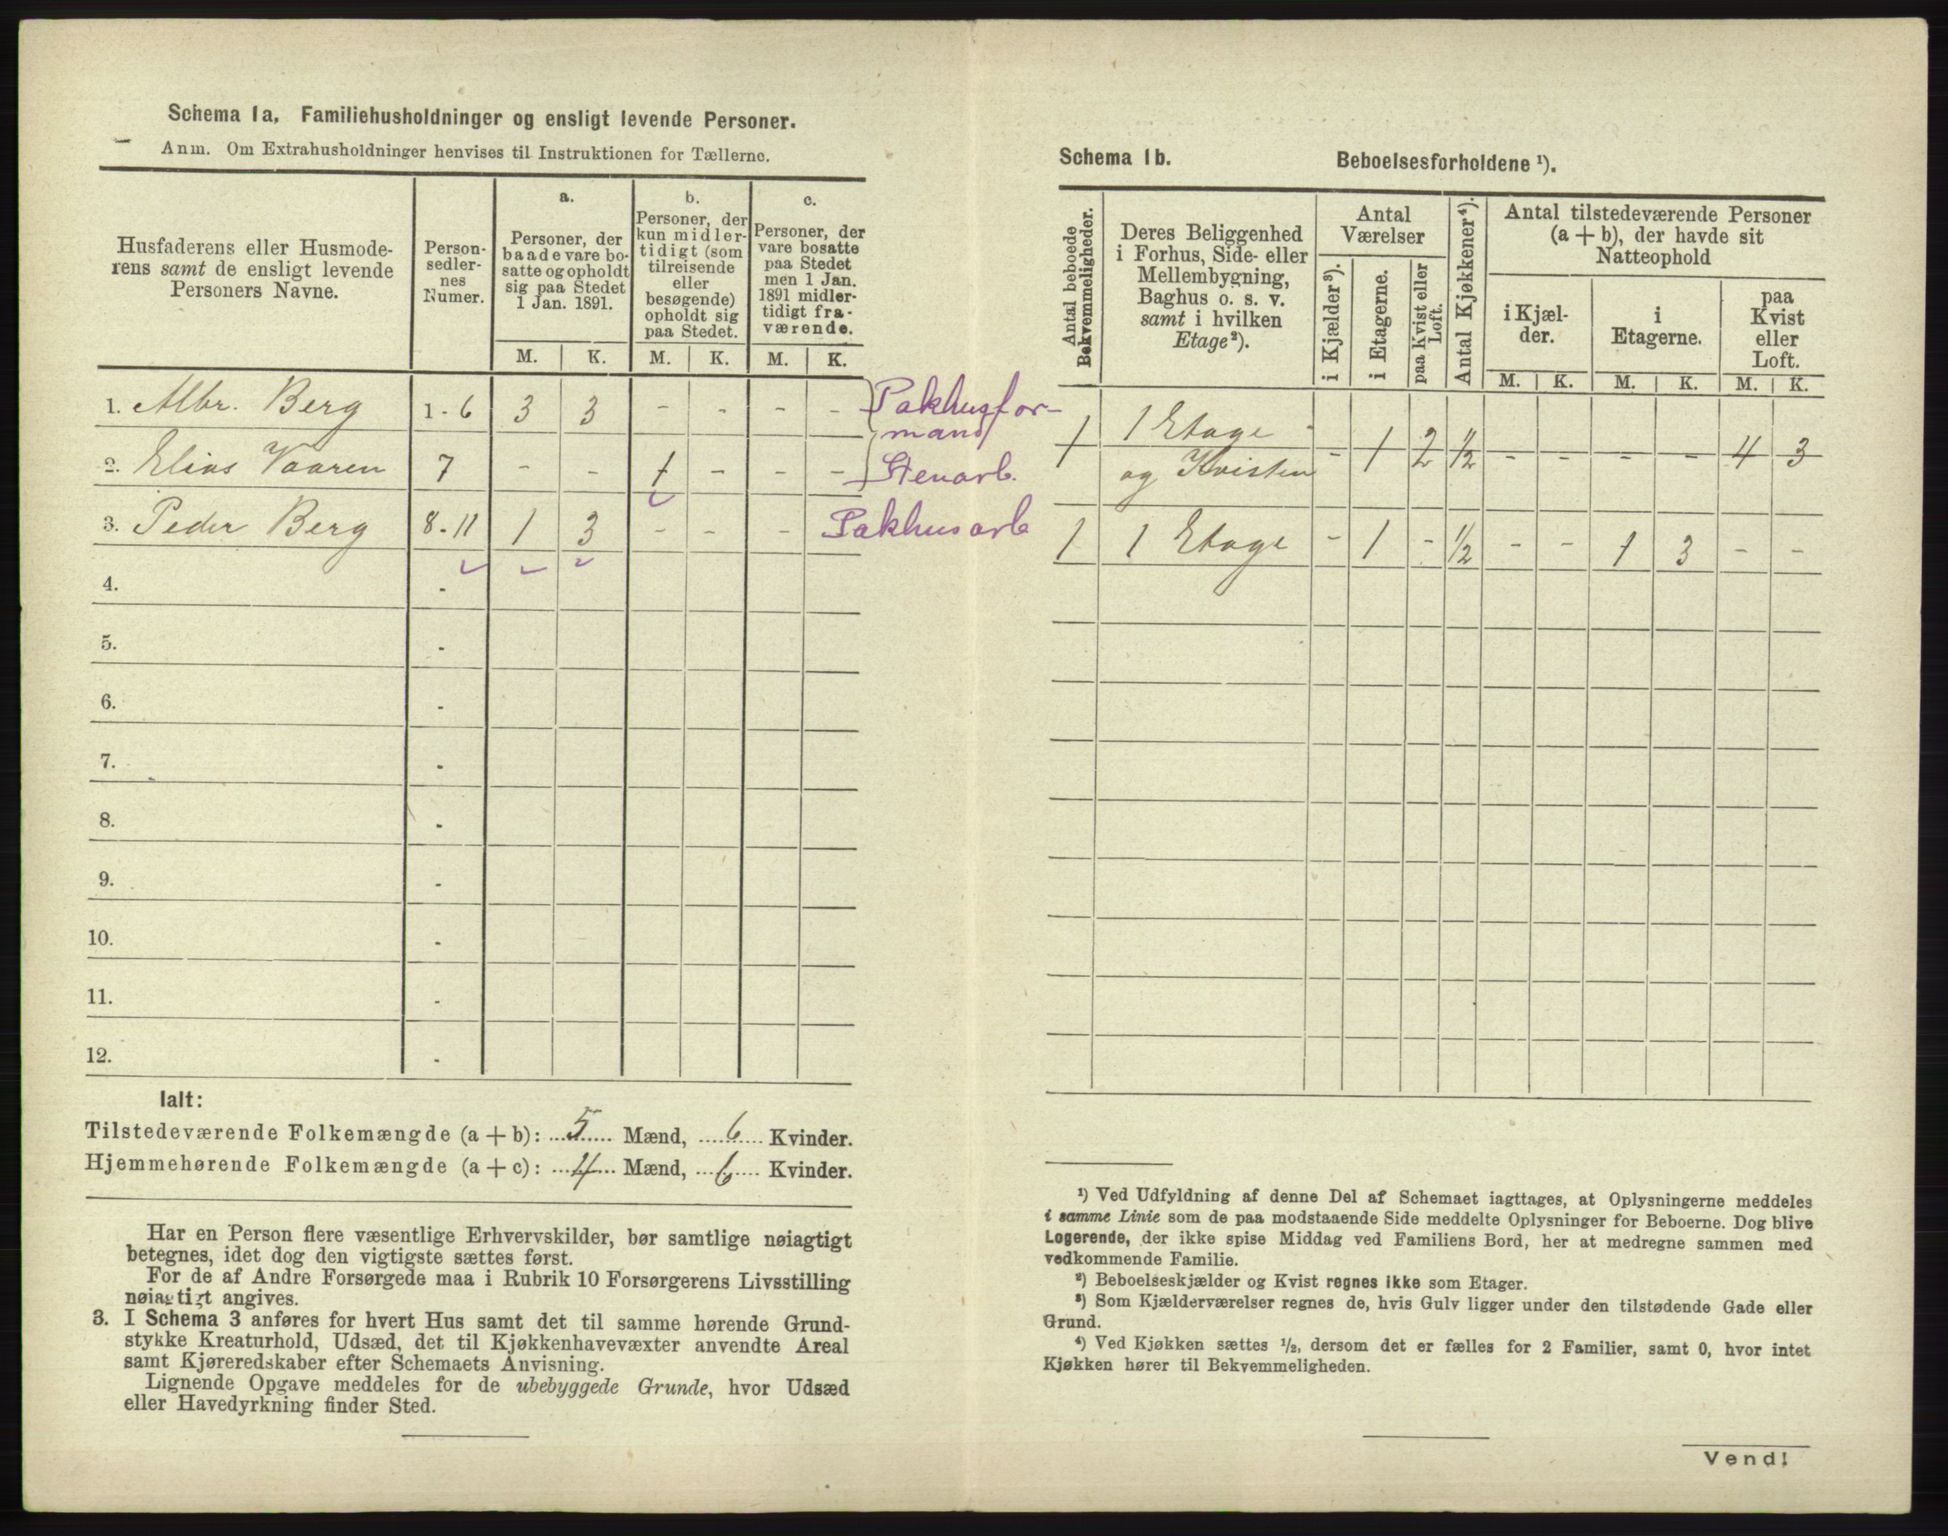 Schema 1a, Familiehusholdninger og ensligt levende Personer.
Anm. Om Extrahusholdninger henvises til Instruktionen for Tællerne.
Husfaderens eller Husmode-
rens samt de ensligt levende
Personers Navne.
Person-
sedler-
nes
Numer.
a.
Personer, der
baade vare bo-
satte og opholdt
sig paa Stedet
1 Jan. 1891.
b.
Personer, der
kun midler-
tidigt (som
tilreisende
eller
besøgende)
opholdt sig
paa Stedet.
c.
Personer, der
vare bosatte
paa Stedet
men 1 Jan.
1891 midler-
tidigt fra-
værende.
M. K. M. K. M. K.
1. Albr. Berg 1-6 3 3 - - - - Pakhusfor-
mand
2. Elias Vaaren 7 - - 1 - - - Stenarb.
3. Peder Berg 8-11 1 3 - - - Pakhusarb
4. -
5. -
6. -
7. -
8. -
9. -
10. -
11. -
12. -
Ialt:
Tilstedeværende Folkemængde (a + b): 5 Mænd, 6 Kvinder.
Hjemmehørende Folkemængde (a + c): 4 Mænd, 6 Kvinder.
Har en Person flere væsentlige Erhvervskilder, bør samtlige nøiagtigt
betegnes, idet dog den vigtigste sættes først.
For de af Andre Forsørgede maa i Rubrik 10 Forsørgerens Livsstilling
nøiagtigt angives.
3. I Schema 3 anføres for hvert Hus samt det til samme hørende Grund-
stykke Kreaturhold, Udsæd, det til Kjøkkenhavevæxter anvendte Areal
samt Kjøreredskaber efter Schemaets Anvisning.
Lignende Opgave meddeles for de ubebyggede Grunde, hvor Udsæd
eller Havedyrkning finder Sted.
Schema 1b. Beboelsesforholdene ¹).
Antal beboede
Bekvemmeligheder.
Deres Beliggenhed
i Forhus, Side- eller
Mellembygning,
Baghus o. s. v.
samt i hvilken
Etage²).
Antal
Værelser
i Kjælder³).
i Etagerne.
paa Kvist eller
Loft.
Antal Kjøkkener⁴).
Antal tilstedeværende Personer
(a + b), der havde sit
Natteophold
i Kjæl-
der.
i
Etagerne.
paa
Kvist
eller
Loft.
M. K. M. K. M. K.
1 1 Etage
og Kvisten - 1 2 ½ - - - - 4 3
1 1 Etage - 1 - ½ - - 1 3 - -
¹) Ved Udfyldning af denne Del af Schemaet iagttages, at Oplysningerne meddeles
i samme Linie som de paa modstaaende Side meddelte Oplysninger for Beboerne. Dog blive
Logerende, der ikke spise Middag ved Familiens Bord, her at medregne sammen med
vedkommende Familie.
²) Beboelseskjælder og Kvist regnes ikke som Etager.
³) Som Kjælderværelser regnes de, hvis Gulv ligger under den tilstødende Gade eller
Grund.
⁴) Ved Kjøkken sættes ½, dersom det er fælles for 2 Familier, samt 0, hvor intet
Kjøkken hører til Bekvemmeligheden.
Vend!